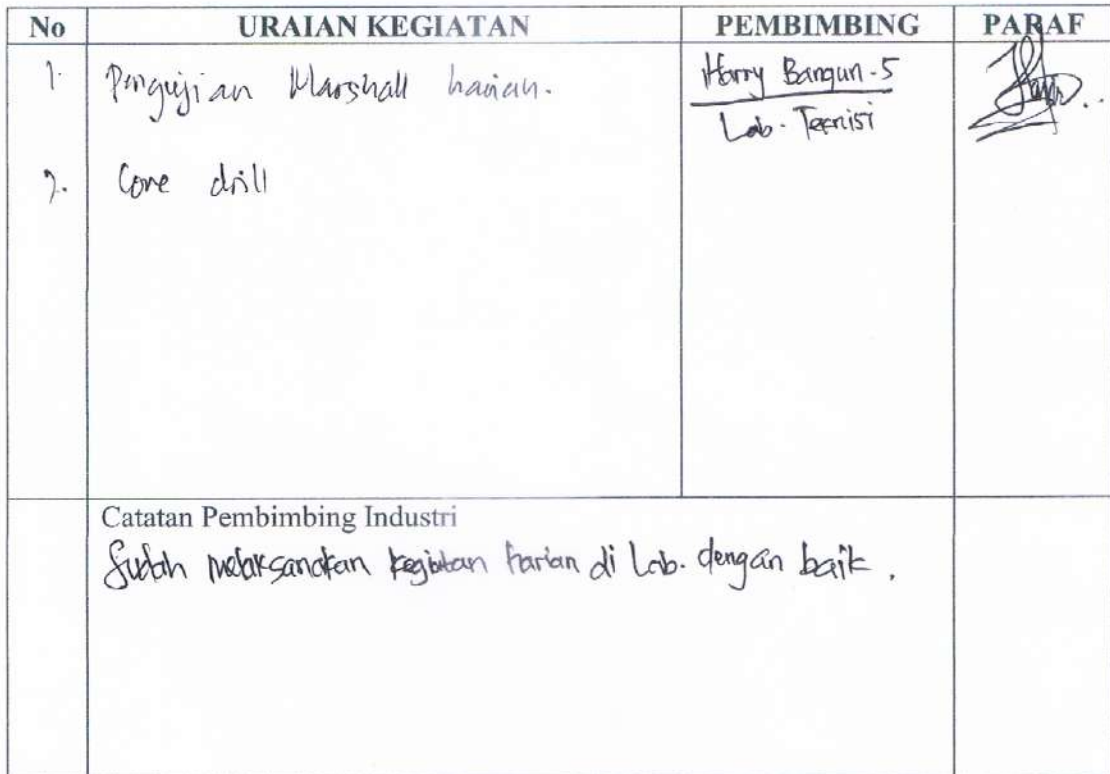 No URAIAN KEGIATAN PEMBIMBING PARAF
1. Pengujian Marshall harian. Harry Bangun.S
Lab. Teknisi
2. Core drill
Catatan Pembimbing Industri
Sudah melaksanakan kegiatan harian di Lab. dengan baik.